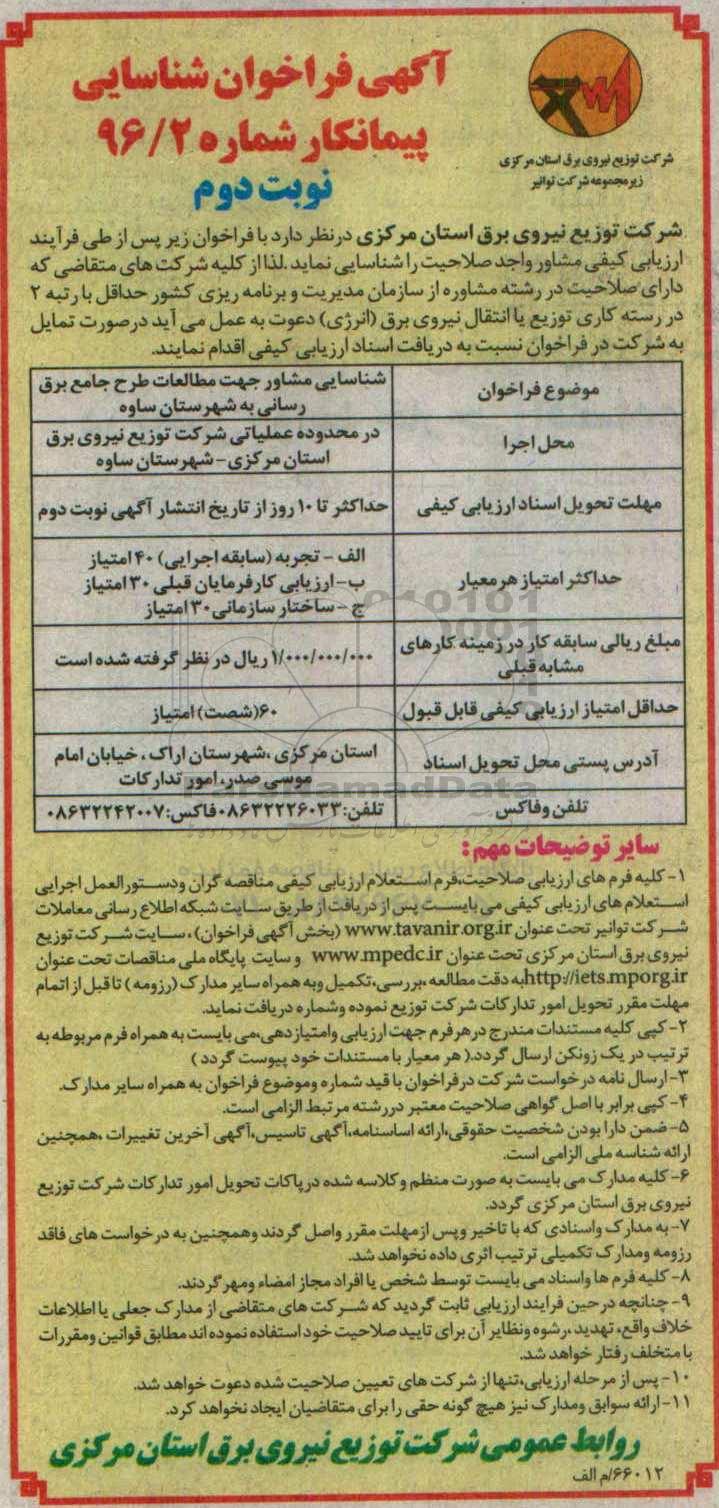 آگهی فراخوان شناسایی
پیمانکار شماره ۹۶/۲
نوبت دوم
شرکت توزیع نیروی برق استان مرکزی
زیرمجموعه شرکت توانیر
شرکت توزیع نیروی برق استان مرکزی درنظر دارد با فراخوان زیر پس از طی فرآیند
ارزیابی کیفی مشاور واجد صلاحیت را شناسایی نماید .لذا از کلیه شرکت های متقاضی که
دارای صلاحیت در رشته مشاوره از سازمان مدیریت و برنامه ریزی کشور حداقل با رتبه ۲
در رسته کاری توزیع یا انتقال نیروی برق (انرژی) دعوت به عمل می آید درصورت تمایل
به شرکت در فراخوان نسبت به دریافت اسناد ارزیابی کیفی اقدام نمایند.
موضوع فراخوان
شناسایی مشاور جهت مطالعات طرح جامع برق
رسانی به شهرستان ساوه
محل اجرا
در محدوده عملیاتی شرکت توزیع نیروی برق
استان مرکزی- شهرستان ساوه
مهلت تحویل اسناد ارزیابی کیفی
حداکثر تا ۱۰ روز از تاریخ انتشار آگهی نوبت دوم
حداکثر امتیاز هر معیار
الف - تجربه (سابقه اجرایی) ۴۰ امتیاز
ب- ارزیابی کارفرمایان قبلی ۳۰ امتیاز
ج - ساختار سازمانی ۳۰ امتیاز
مبلغ ریالی سابقه کار در زمینه کارهای
مشابه قبلی
۱/۰۰۰/۰۰۰/۰۰۰ ریال در نظر گرفته شده است
حداقل امتیاز ارزیابی کیفی قابل قبول
۶۰(شصت) امتیاز
آدرس پستی محل تحویل اسناد
استان مرکزی ،شهرستان اراک ، خیابان امام
موسی صدر، امور تدارکات
تلفن وفاکس
تلفن:۰۸۶۳۲۲۲۶۰۳۳فاکس:۰۸۶۳۲۲۴۲۰۰۷
سایر توضیحات مهم:
۱- کلیه فرم های ارزیابی صلاحیت،فرم استعلام ارزیابی کیفی مناقصه گران ودستورالعمل اجرایی
استعلام های ارزیابی کیفی می بایست پس از دریافت از طریق سایت شبکه اطلاع رسانی معاملات
شرکت توانیر تحت عنوان www.tavanir.org.ir (بخش آگهی فراخوان) ، سایت شرکت توزیع
نیروی برق استان مرکزی تحت عنوان www.mpedc.ir و سایت پایگاه ملی مناقصات تحت عنوان
http://iets.mporg.irبه دقت مطالعه ،بررسی،تکمیل وبه همراه سایر مدارک (رزومه) تا قبل از اتمام
مهلت مقرر تحویل امور تدارکات شرکت توزیع نموده وشماره دریافت نماید.
۲- کپی کلیه مستندات مندرج در هرفرم جهت ارزیابی وامتیازدهی،می بایست به همراه فرم مربوطه به
ترتیب در یک زونکن ارسال گردد.( هر معیار با مستندات خود پیوست گردد )
۳- ارسال نامه درخواست شرکت در فراخوان با قید شماره وموضوع فراخوان به همراه سایر مدارک.
۴- کپی برابر با اصل گواهی صلاحیت معتبر در رشته مرتبط الزامی است.
۵- ضمن دارا بودن شخصیت حقوقی،ارائه اساسنامه،آگهی تاسیس،آگهی آخرین تغییرات ،همچنین
ارائه شناسه ملی الزامی است.
۶- کلیه مدارک می بایست به صورت منظم وکلاسه شده در پاکات تحویل امور تدارکات شرکت توزیع
نیروی برق استان مرکزی گردد.
۷- به مدارک واسنادی که با تاخیر وپس از مهلت مقرر واصل گردند وهمچنین به درخواست های فاقد
رزومه ومدارک تکمیلی ترتیب اثری داده نخواهد شد.
۸- کلیه فرم ها واسناد می بایست توسط شخص یا افراد مجاز امضاء ومهر گردند.
۹- چنانچه در حین فرایند ارزیابی ثابت گردید که شرکت های متقاضی از مدارک جعلی یا اطلاعات
خلاف واقع، تهدید ،رشوه ونظایر آن برای تایید صلاحیت خود استفاده نموده اند مطابق قوانین ومقررات
با متخلف رفتار خواهد شد.
۱۰- پس از مرحله ارزیابی،تنها از شرکت های تعیین صلاحیت شده دعوت خواهد شد.
۱۱- ارائه سوابق ومدارک نیز هیچ گونه حقی را برای متقاضیان ایجاد نخواهد کرد.
روابط عمومی شرکت توزیع نیروی برق استان مرکزی
۶۶۰۱۲/م الف